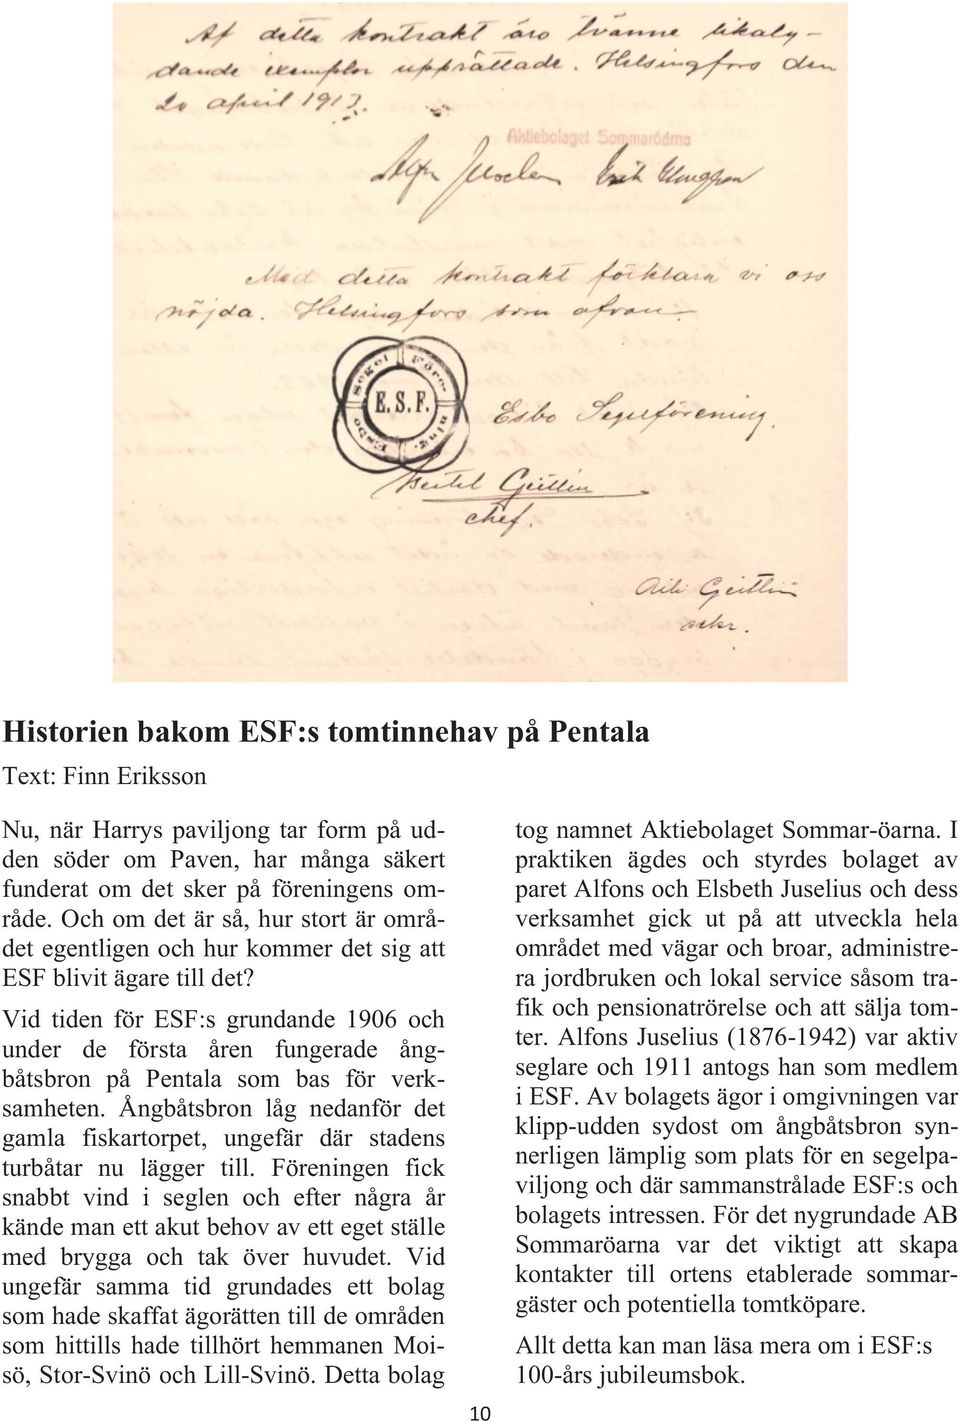 Af detta kontrakt äro tvänne likaly-
dande exemplar upprättade. Helsingfors den
20 april 1913.
Aktiebolaget Sommaröarna
Alfn Juselen
Med detta kontrakt förklara vi oss
nöjda. Helsingfors som ofvan.
Segel Före-
E. S. F.
ning. Esbo
Esbo Segelförening.
Bertel Geitlin
chef.
Aili Geitlin
sekr.
Historien bakom ESF:s tomtinnehav på Pentala
Text: Finn Eriksson
Nu, när Harrys paviljong tar form på ud-
den söder om Paven, har många säkert
funderat om det sker på föreningens om-
råde. Och om det är så, hur stort är områ-
det egentligen och hur kommer det sig att
ESF blivit ägare till det?
Vid tiden för ESF:s grundande 1906 och
under de första åren fungerade ång-
båtsbron på Pentala som bas för verk-
samheten. Ångbåtsbron låg nedanför det
gamla fiskartorpet, ungefär där stadens
turbåtar nu lägger till. Föreningen fick
snabbt vind i seglen och efter några år
kände man ett akut behov av ett eget ställe
med brygga och tak över huvudet. Vid
ungefär samma tid grundades ett bolag
som hade skaffat ägorätten till de områden
som hittills hade tillhört hemmanen Moi-
sö, Stor-Svinö och Lill-Svinö. Detta bolag
tog namnet Aktiebolaget Sommar-öarna. I
praktiken ägdes och styrdes bolaget av
paret Alfons och Elsbeth Juselius och dess
verksamhet gick ut på att utveckla hela
området med vägar och broar, administre-
ra jordbruken och lokal service såsom tra-
fik och pensionatrörelse och att sälja tom-
ter. Alfons Juselius (1876-1942) var aktiv
seglare och 1911 antogs han som medlem
i ESF. Av bolagets ägor i omgivningen var
klipp-udden sydost om ångbåtsbron syn-
nerligen lämplig som plats för en segelpa-
viljong och där sammanstrålade ESF:s och
bolagets intressen. För det nygrundade AB
Sommaröarna var det viktigt att skapa
kontakter till ortens etablerade sommar-
gäster och potentiella tomtköpare.
Allt detta kan man läsa mera om i ESF:s
100-års jubileumsbok.
10